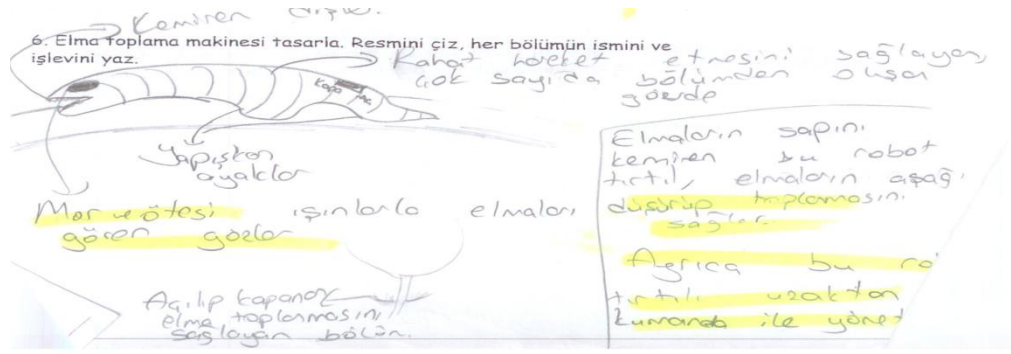 Kemiren dişler.
6. Elma toplama makinesi tasarla. Resmini çiz, her bölümün ismini ve
işlevini yaz.
Rahat hareket etmesini sağlayan,
çok sayıda bölümden oluşan
gövde
Kapa
Yapışkan
ayaklar
Mor ve ötesi ışınlarla elmaları
gören gözler
Açılıp kapanan
elma toplanmasını
sağlayan bölüm.
Elmaların sapını
kemiren bu robot
tırtıl, elmaların aşağı
düşürüp toplamasını
sağlar.
Ayrıca bu ro
tırtılı uzaktan
kumanda ile yönet